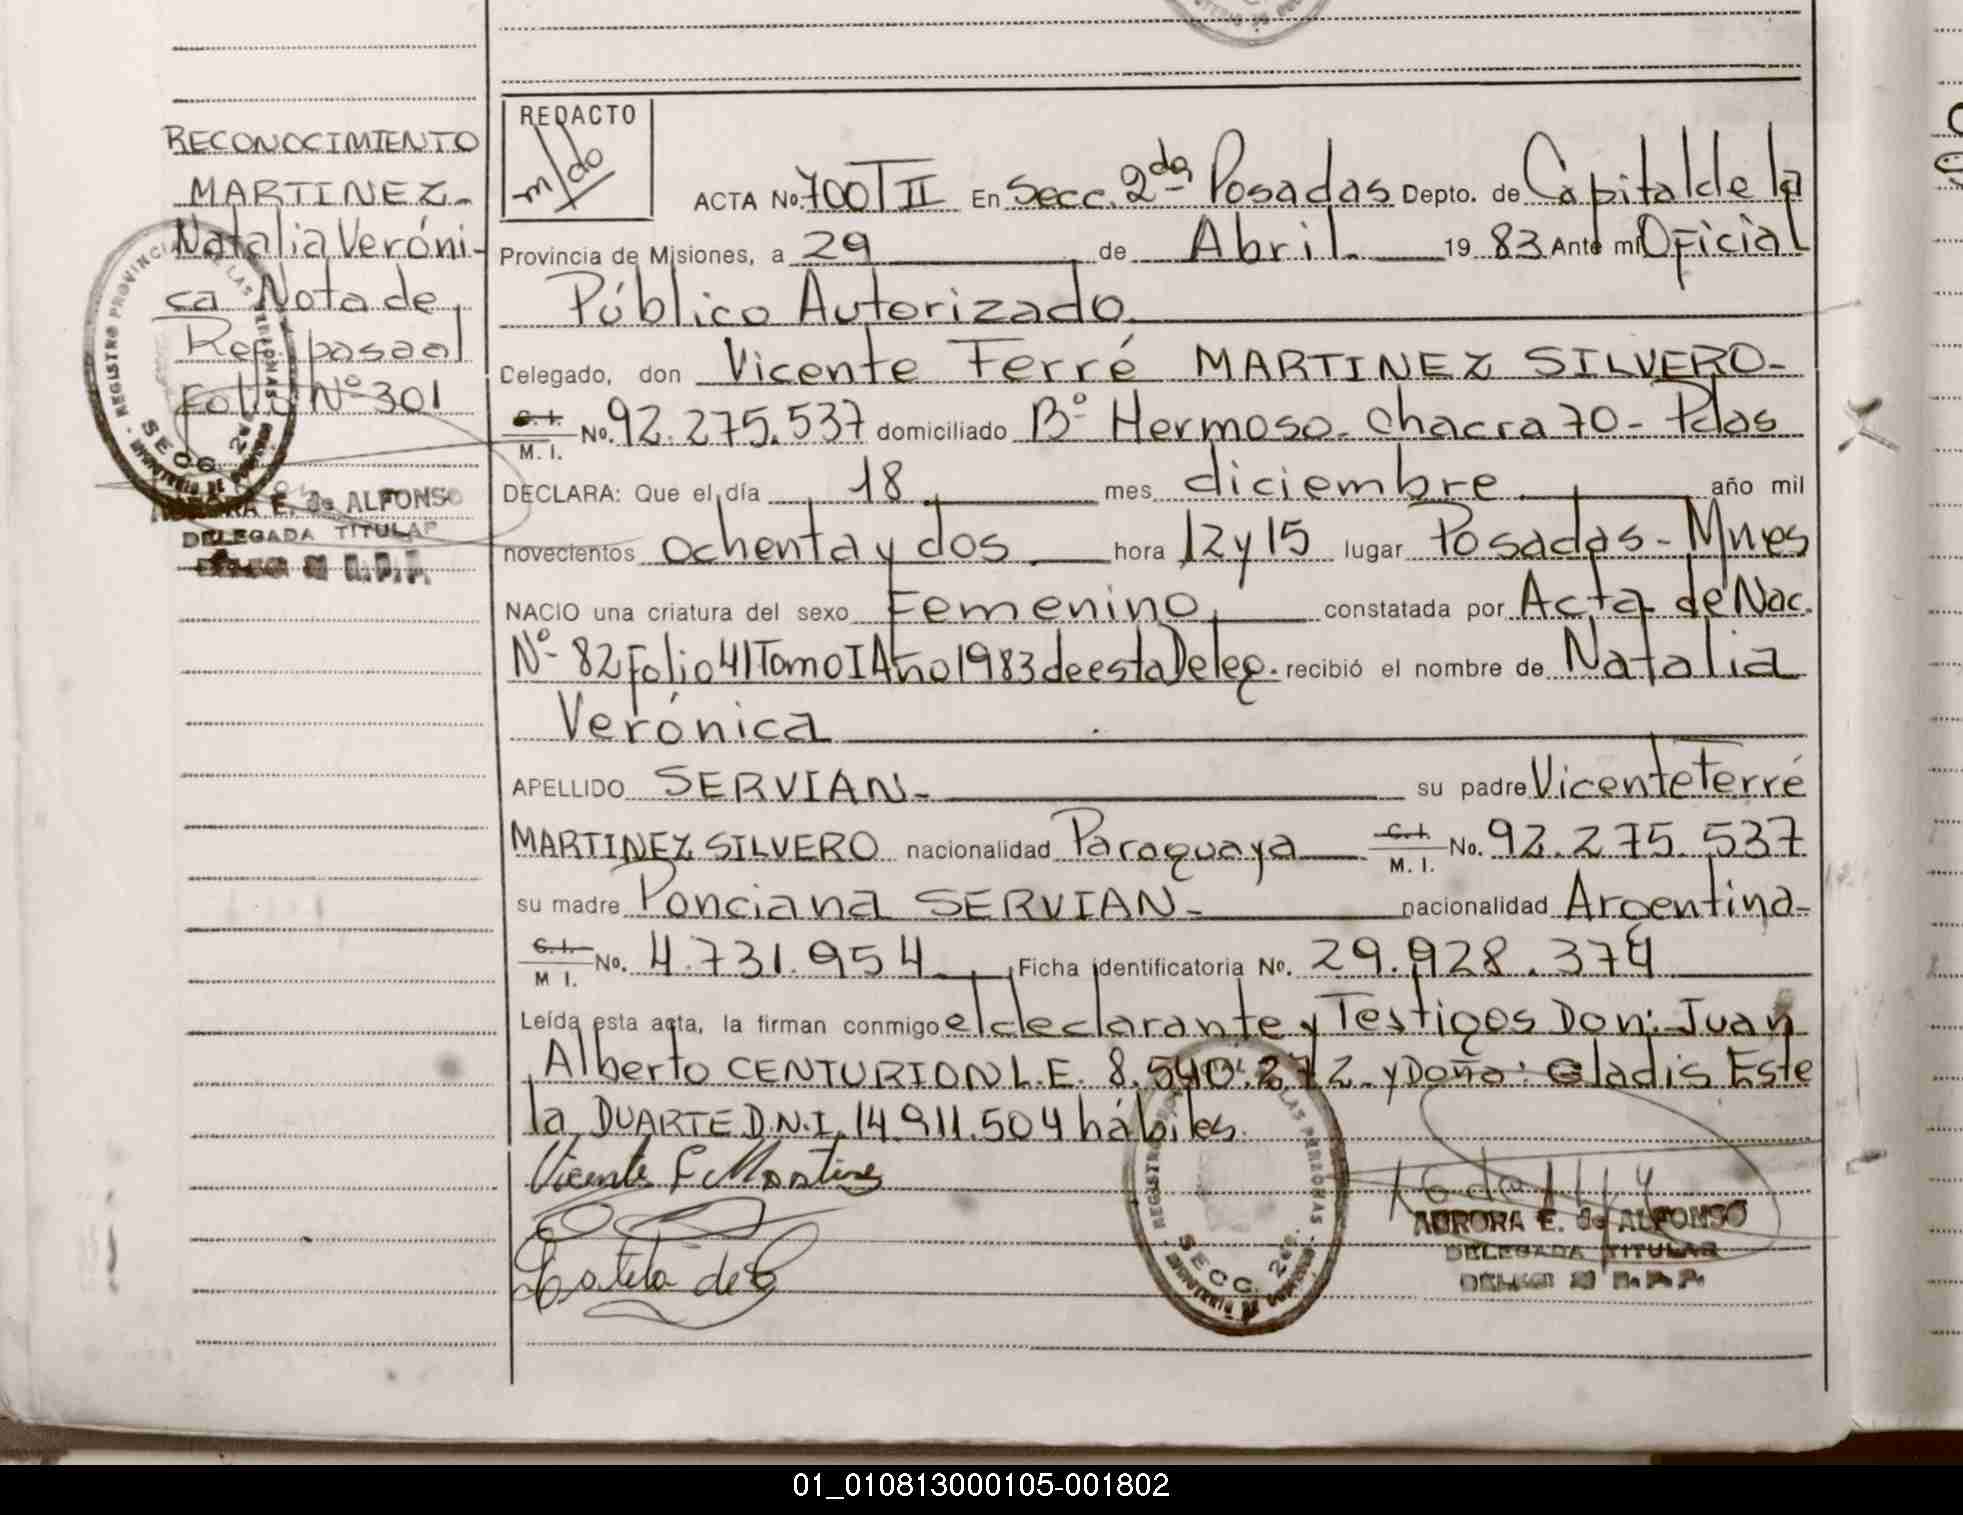 RECONOCIMIENTO
MARTINEZ-
Natalia Veróni-
ca Nota de
Ref. pasa al
Folio Nº 301
REGISTRO PROVINCIAL DE LAS PERSONAS
SECC. 2da.
AURORA E. de ALFONSO
DELEGADA TITULAR
REDACTO
m/do
ACTA No. 700 T II En Secc. 2da Posadas Depto. de Capital de la
Provincia de Misiones, a 29 de Abril 19 83 Ante mi Oficial
Público Autorizado.
Delegado, don Vicente Ferré MARTINEZ SILVERO-
C.I. M.I. No. 92.275.537 domiciliado Bº Hermoso- Chacra 70- Pdas
DECLARA: Que el día 18 mes diciembre año mil
novecientos ochenta y dos hora 12 y 15 lugar Posadas- Mnes
NACIO una criatura del sexo Femenino constatada por Acta de Nac.
Nº- 82 Folio 41 Tomo I Año 1983 de esta Deleg. recibió el nombre de Natalia
Verónica
APELLIDO SERVIAN- su padre Vicente Ferré
MARTINEZ SILVERO nacionalidad Paraguaya C.I. M.I. No. 92.275.537
su madre Ponciana SERVIAN- nacionalidad Argentina-
C.I. M I. No. 4.731.954 Ficha identificatoria No. 29.928.374
Leída esta acta, la firman conmigo el declarante y Testigos Don: Juan
Alberto CENTURION L.E. 8.540.272- y Doña: Gladis Este
la DUARTE D.N.I. 14.911.504 hábiles.
Vicente F Martinez
REGISTRO LAS PERSONAS
SECC. 2da.
AURORA E. de ALFONSO
DELEGADA TITULAR
01_010813000105-001802